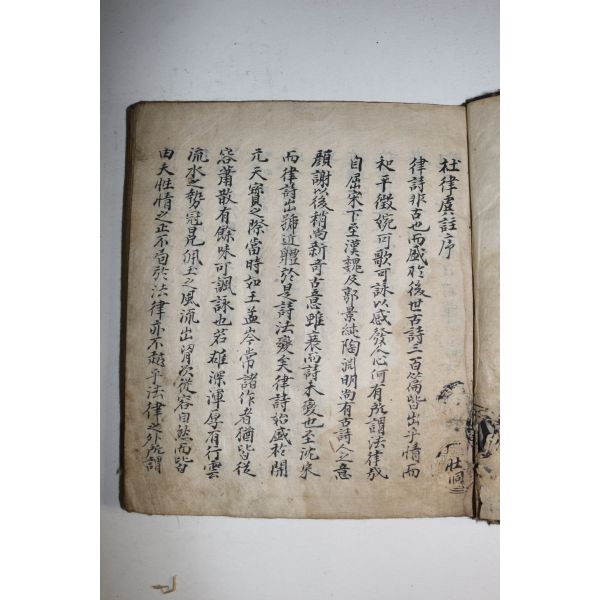 杜律虞註序
律詩非古也而盛於後世古詩三百篇皆出乎情而
和平微婉可歌可詠以感發人心何有所謂法律哉
自屈宋下至漢魏及郭景純陶淵明尚有古詩人之意
顔謝以後稍尚新奇古意雖衰而詩未變也至沈宋
而律詩出號近體於是詩法變矣律詩始盛於開
元天寶之際當時如王孟岑常諸作者猶皆從
容蕭散有餘味可諷詠也若雄深渾厚有行雲
流水之勢冠冕佩玉之風流出胷次從容自然而皆
由夫性情之正不局於法律亦不越乎法律之外所謂